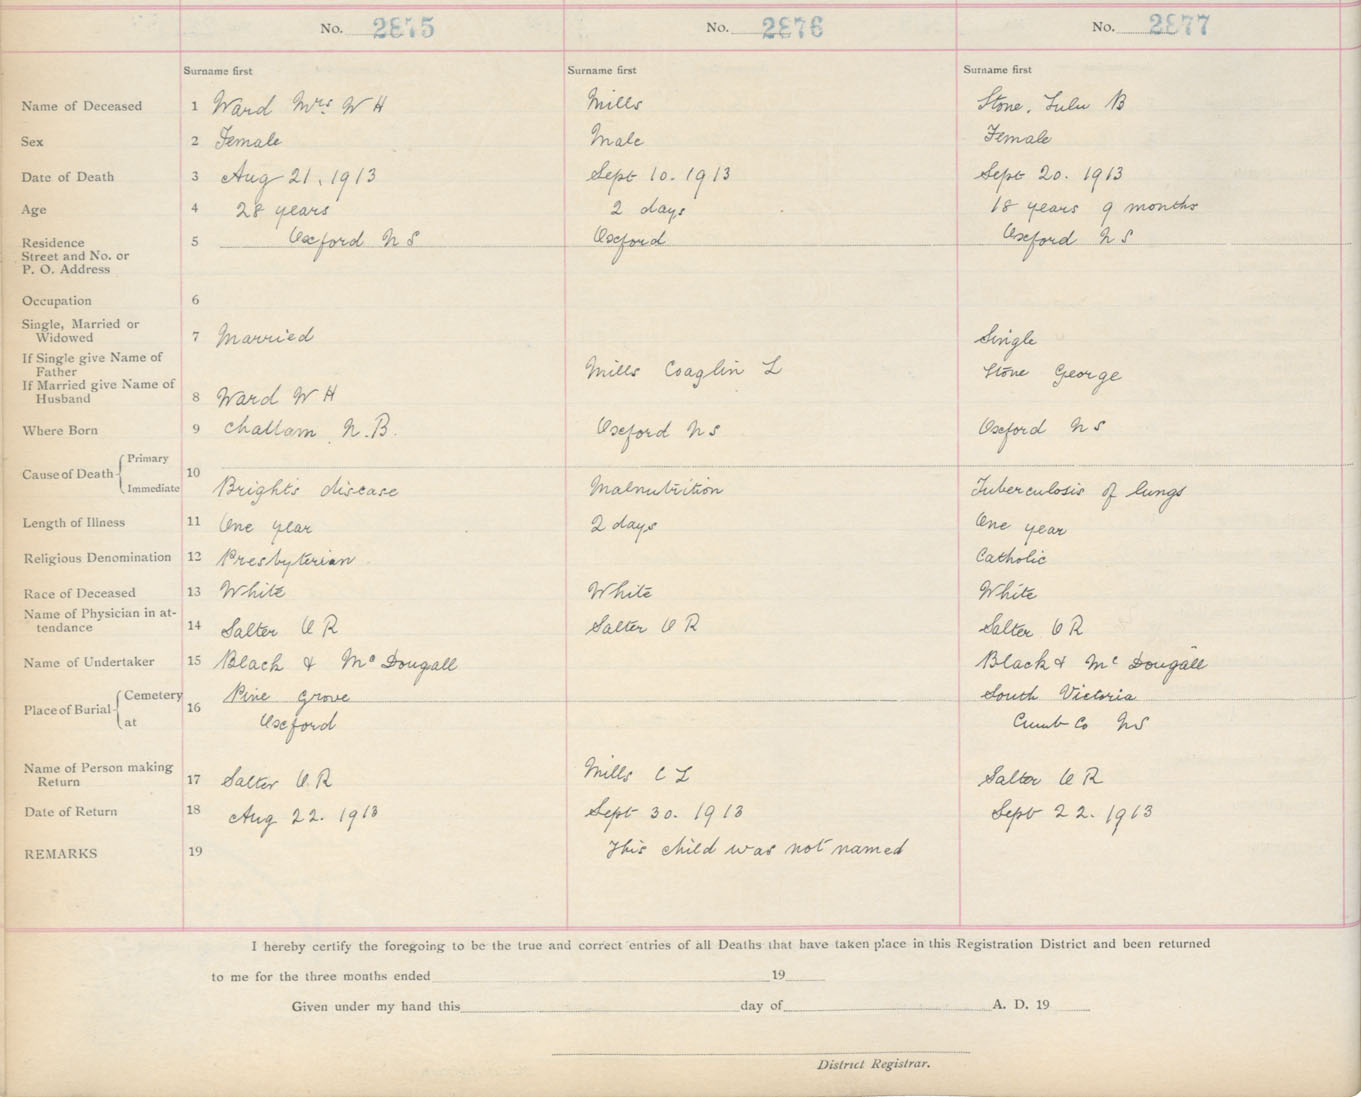 No. 2875 No. 2876 No. 2877
Surname first Surname first Surname first
Name of Deceased 1 Ward Mrs. W H Mills Stone, Lulu B
Sex 2 Female Male Female
Date of Death 3 Aug 21, 1913 Sept 10. 1913 Sept 20. 1913
Age 4 28 years 2 days 18 years 9 months
Residence 5 Oxford N S Oxford Oxford N S
Street and No. or
P. O. Address
Occupation 6
Single, Married or
Widowed 7 Married Single
If Single give Name of
Father Mills Coaglin L Stone George
If Married give Name of
Husband 8 Ward W H
Where Born 9 Chattam N.B. Oxford N S Oxford N S
Cause of Death Primary 10
Immediate Brights disease Malnutrition Tuberculosis of lungs
Length of Illness 11 One year 2 days One year
Religious Denomination 12 Presbyterian Catholic
Race of Deceased 13 White White White
Name of Physician in at-
tendance 14 Salter O R Salter O R Salter O R
Name of Undertaker 15 Black & Mc Dougall Black & Mc Dougall
Place of Burial Cemetery 16 Pine Grove South Victoria
at Oxford Cumb Co NS
Name of Person making
Return 17 Salter O.R Mills C L Salter O R
Date of Return 18 Aug 22. 1913 Sept 30. 1913 Sept 22. 1913
REMARKS 19 This child was not named
I hereby certify the foregoing to be the true and correct entries of all Deaths that have taken place in this Registration District and been returned
to me for the three months ended 19
Given under my hand this day of A. D. 19
District Registrar.